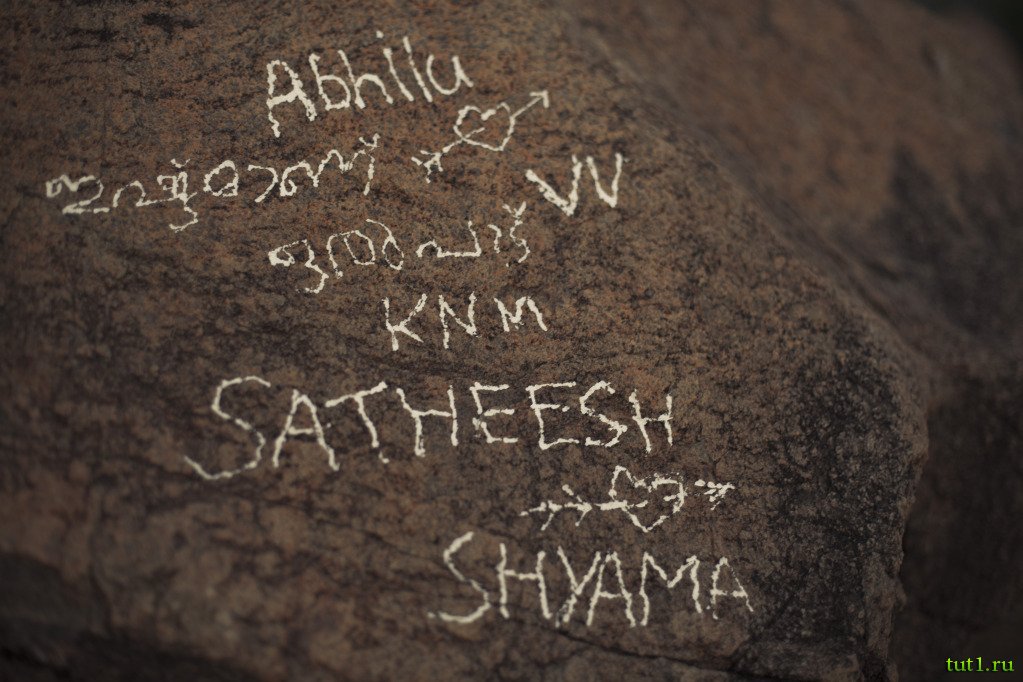 Abhilu
VV
KNM
SATHEESH
SHYAMA
tut1.ru